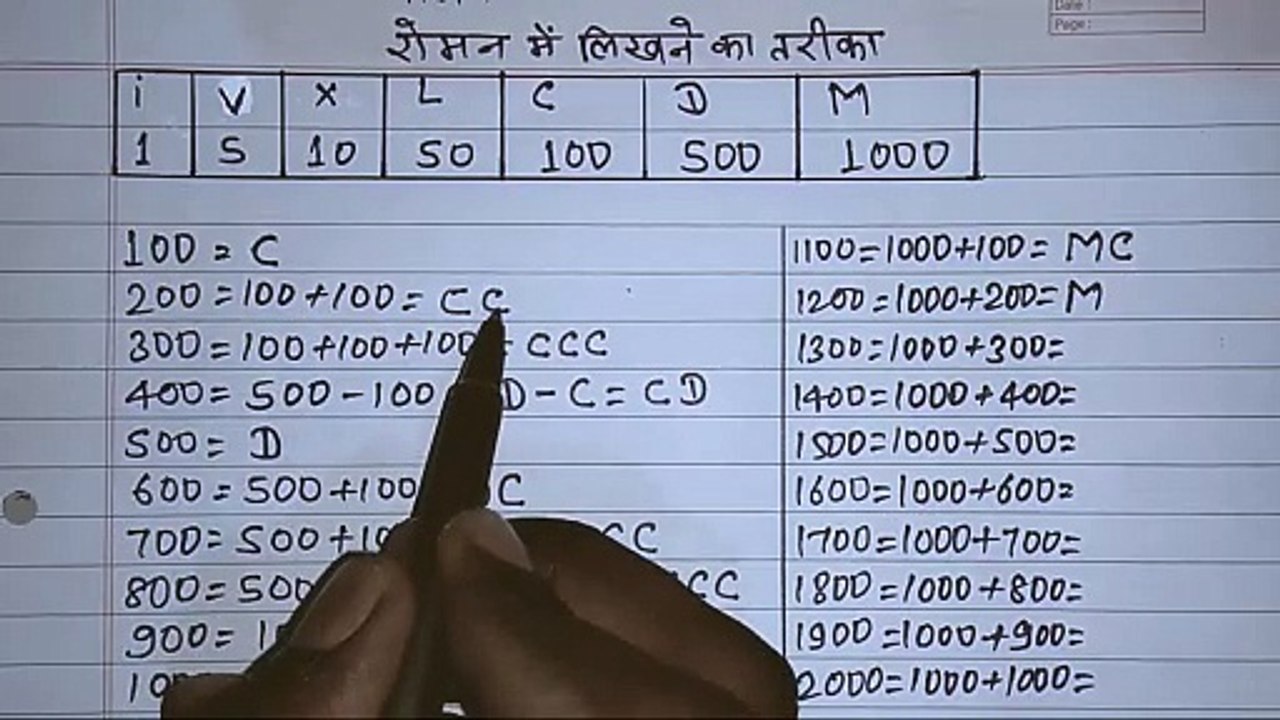 Date :
Page :
रोमन में लिखने का तरीका
i V X L C D M
1 5 10 50 100 500 1000
100 = C
200 = 100 + 100 = CC
300 = 100 + 100 + 100 = CCC
400 = 500 - 100 D - C = CD
500 = D
600 = 500 + 100 C
700 = 500 + 10 CC
800 = 500 CC
900 = 1
10
1100 = 1000 + 100 = MC
1200 = 1000 + 200 = M
1300 = 1000 + 300 =
1400 = 1000 + 400 =
1500 = 1000 + 500 =
1600 = 1000 + 600 =
1700 = 1000 + 700 =
1800 = 1000 + 800 =
1900 = 1000 + 900 =
2000 = 1000 + 1000 =